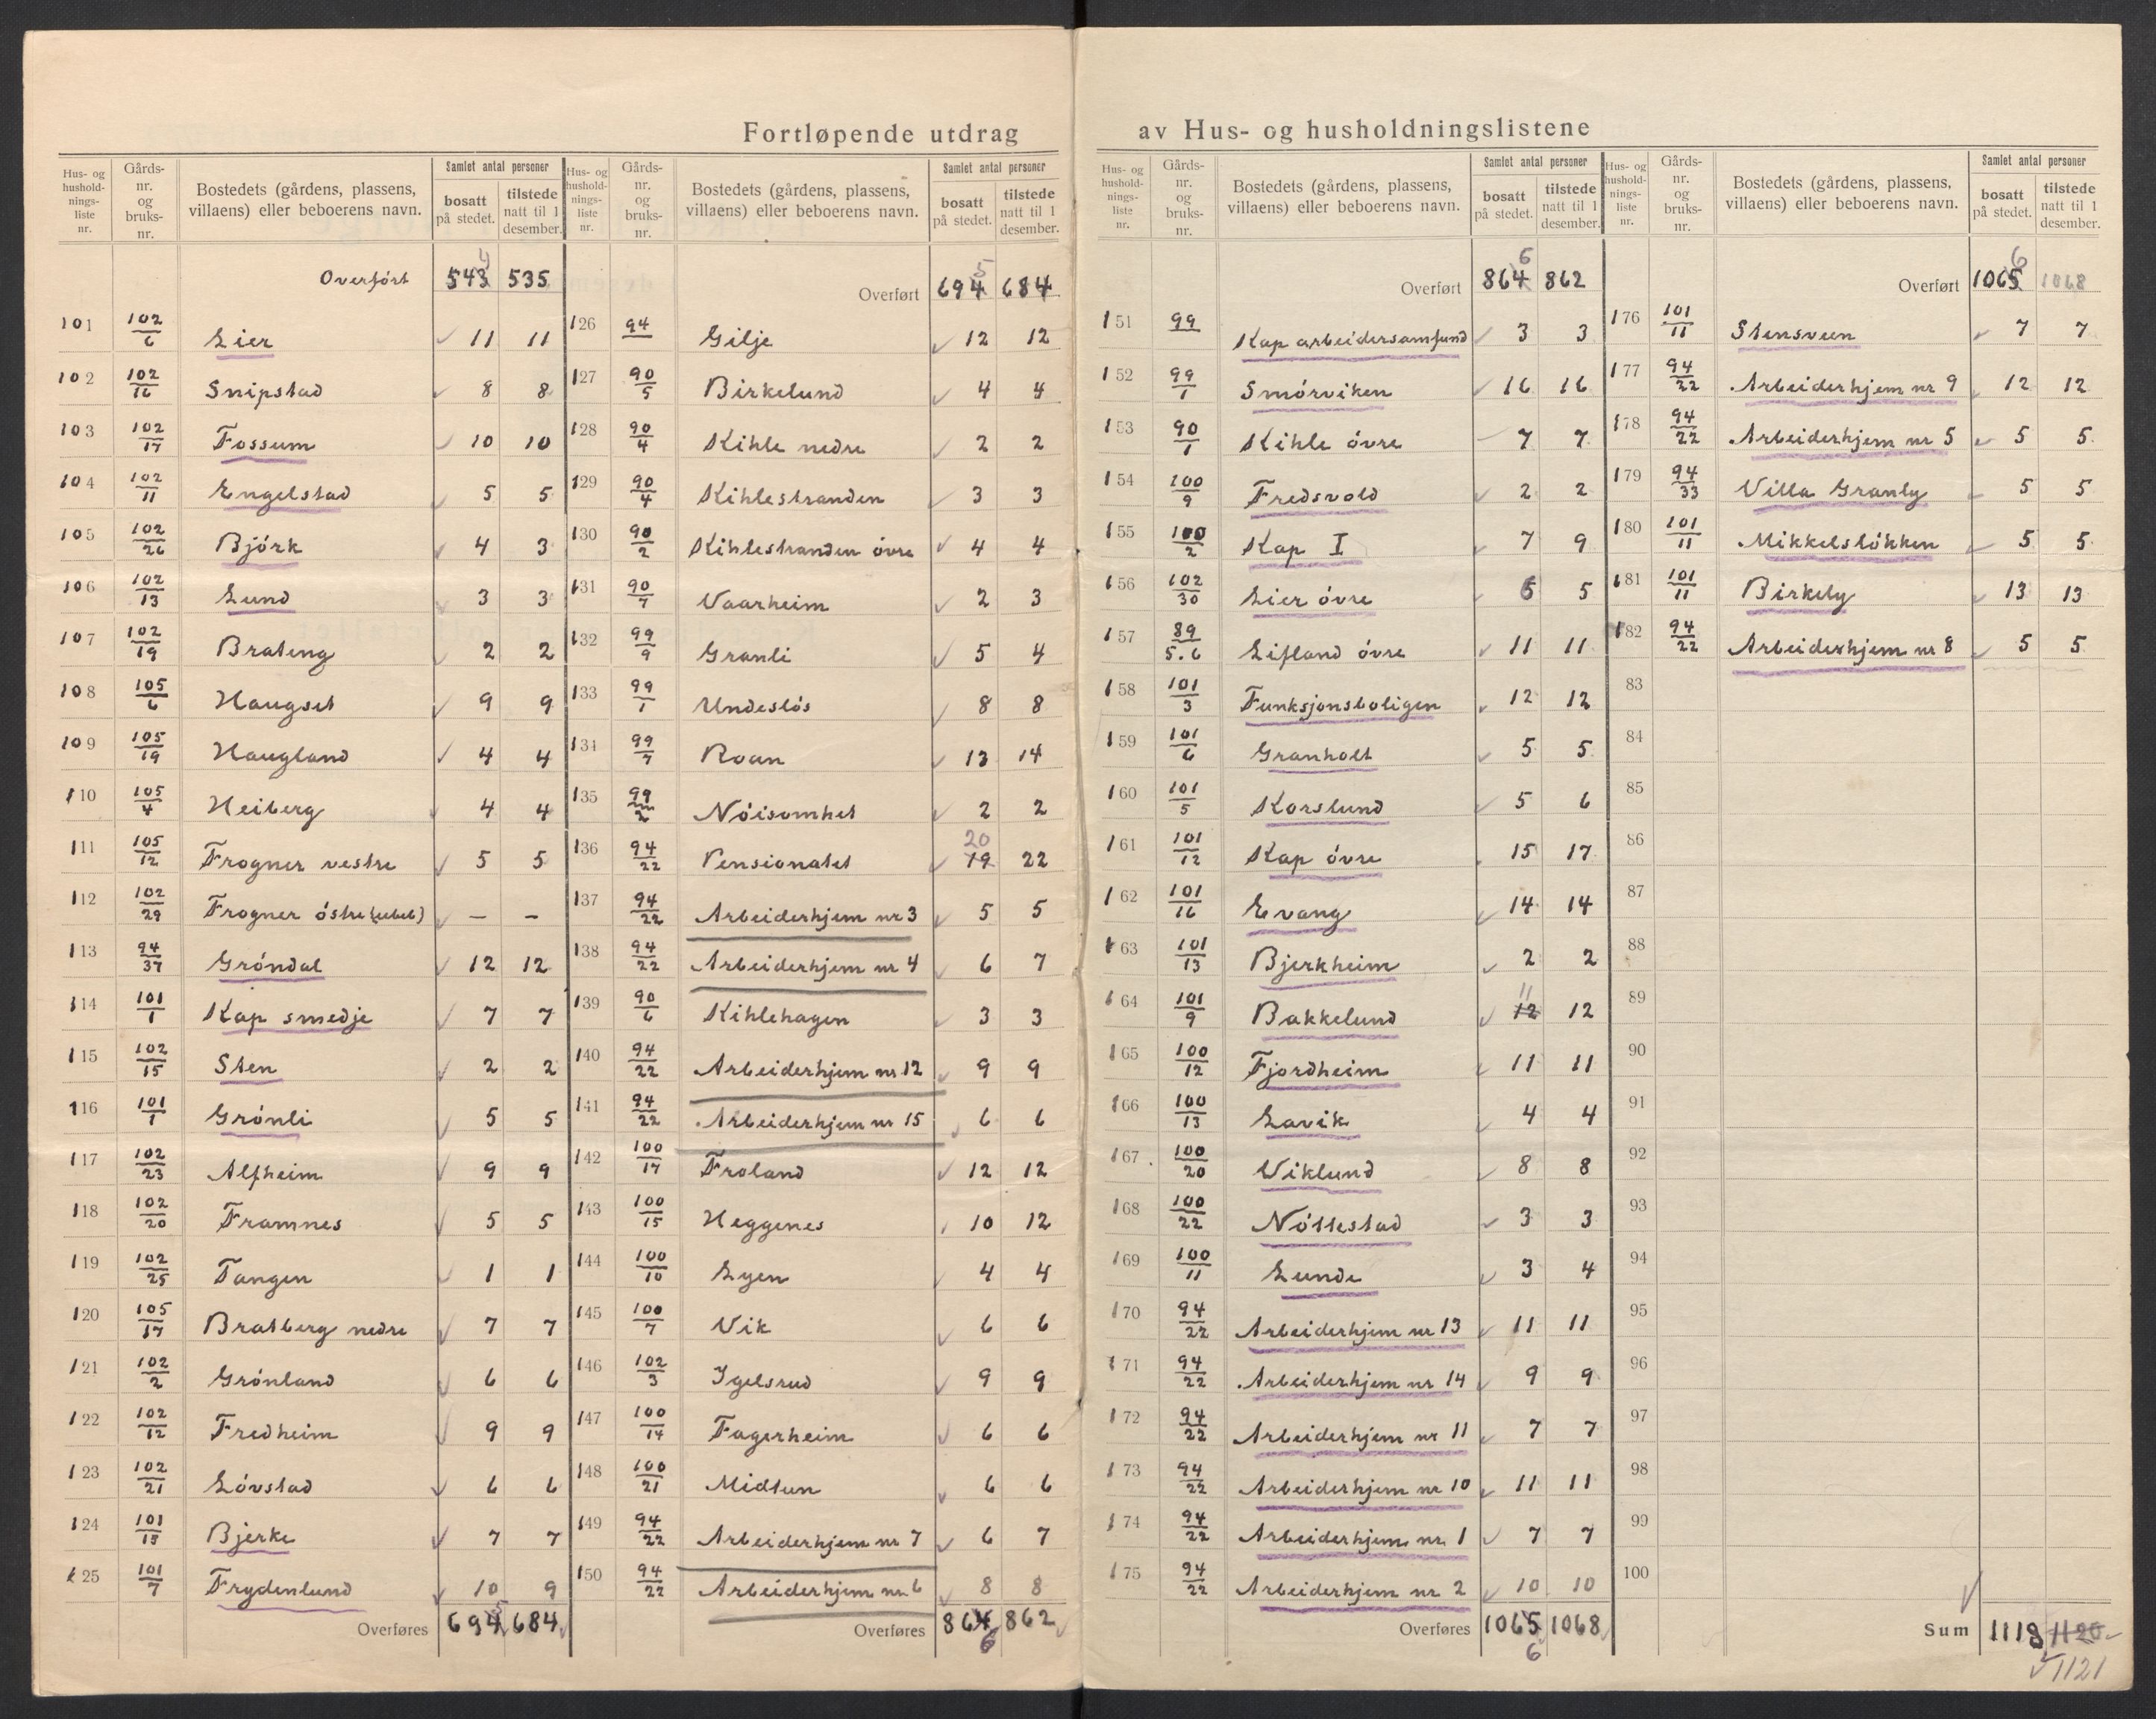 Fortløpende utdrag av Hus- og husholdningslistene
Hus- og hushold-nings-liste nr. | Gårds-nr. og bruks-nr. | Bostedets (gårdens, plassens, villaens) eller beboerens navn. | Samlet antal personer | bosatt på stedet. | tilstede natt til 1 desember.
Overført 543 4 535
101 102/6 Lier 11 11
102 102/16 Snipstad 8 8
103 102/17 Fossum 10 10
104 102/11 Engelstad 5 5
105 102/26 Björk 4 3
106 102/13 Lund 3 3
107 102/19 Brateng 2 2
108 105/6 Haugset 9 9
109 105/19 Haugland 4 4
110 105/4 Heiberg 4 4
111 105/12 Frogner vestre 5 5
112 102/29 Frogner östre (ubeb) – –
113 94/37 Gröndal 12 12
114 101/1 Kap smedje 7 7
115 102/15 Sten 2 2
116 101/1 Grönli 5 5
117 102/23 Alfheim 9 9
118 102/20 Framnes 5 5
119 102/25 Tangen 1 1
120 105/17 Bratberg nedre 7 7
121 102/2 Grönland 6 6
122 102/12 Fredheim 9 9
123 102/21 Lövstad 6 6
124 101/15 Bjerke 7 7
125 101/7 Frydenlund 10 9
Overføres 694 5 684
Hus- og hushold-nings-liste nr. | Gårds-nr. og bruks-nr. | Bostedets (gårdens, plassens, villaens) eller beboerens navn. | Samlet antal personer | bosatt på stedet. | tilstede natt til 1 desember.
Overført 694 5 684
126 94 Gilje 12 12
127 90/5 Birkelund 4 4
128 90/4 Kihle nedre 2 2
129 90/4 Kihlestranden 3 3
130 90/2 Kihlestranden övre 4 4
131 90/7 Vaarheim 2 3
132 99/9 Granli 5 4
133 99/1 Undeslös 8 8
134 99/7 Roan 13 14
135 99/2 Nöisomhet 2 2
136 94/22 Pensionatet 19 20 22
137 94/22 Arbeiderhjem nr 3 5 5
138 94/22 Arbeiderhjem nr 4 6 7
139 90/6 Kihlehagen 3 3
140 94/22 Arbeiderhjem nr 12 9 9
141 94/22 Arbeiderhjem nr 15 6 6
142 100/17 Froland 12 12
143 100/15 Heggenes 10 12
144 100/10 Lyen 4 4
145 100/7 Vik 6 6
146 102/3 Igelsrud 9 9
147 100/14 Fagerheim 6 6
148 100/21 Midtun 6 6
149 94/22 Arbeiderhjem nr 7 6 7
150 94/22 Arbeiderhjem nr. 6 8 8
Overføres 864 6 862
Hus- og hushold-nings-liste nr. | Gårds-nr. og bruks-nr. | Bostedets (gårdens, plassens, villaens) eller beboerens navn. | Samlet antal personer | bosatt på stedet. | tilstede natt til 1 desember.
Overført 864 6 862
151 99 Kap arbeidersamfund 3 3
152 99/1 Smörviken 16 16
153 90/1 Kihle övre 7 7
154 100/9 Fredsvold 2 2
155 100/2 Kap I 7 9
156 102/30 Lier övre 5 5
157 89/5.6 Lifland övre 11 11
158 101/3 Funksjonsboligen 12 12
159 101/6 Granholt 5 5
160 101/5 Korslund 5 6
161 101/12 Kap övre 15 17
162 101/16 Evang 14 14
163 101/13 Bjerkheim 2 2
164 101/9 Bakkelund 12 11 12
165 100/12 Fjordheim 11 11
166 100/13 Lavik 4 4
167 100/20 Viklund 8 8
168 100/22 Nöttestad 3 3
169 100/11 Lunde 3 4
170 94/22 Arbeiderhjem nr 13 11 11
171 94/22 Arbeiderhjem nr 14 9 9
172 94/22 Arbeiderhjem nr 11 7 7
173 94/22 Arbeiderhjem nr 10 11 11
174 94/22 Arbeiderhjem nr. 1 7 7
175 94/22 Arbeiderhjem nr. 2 10 10
Overføres 1065 6 1068
Hus- og hushold-nings-liste nr. | Gårds-nr. og bruks-nr. | Bostedets (gårdens, plassens, villaens) eller beboerens navn. | Samlet antal personer | bosatt på stedet. | tilstede natt til 1 desember.
Overført 1065 6 1068
176 101/11 Stensveen 7 7
177 94/22 Arbeiderhjem nr 9 12 12
178 94/22 Arbeiderhjem nr 5 5 5
179 94/33 Villa Granly 5 5
180 101/11 Mikkelslökken 5 5
181 101/11 Birkely 13 13
182 94/22 Arbeiderhjem nr 8 5 5
83
84
85
86
87
88
89
90
91
92
93
94
95
96
97
98
99
100
Sum 1118 1120
1121